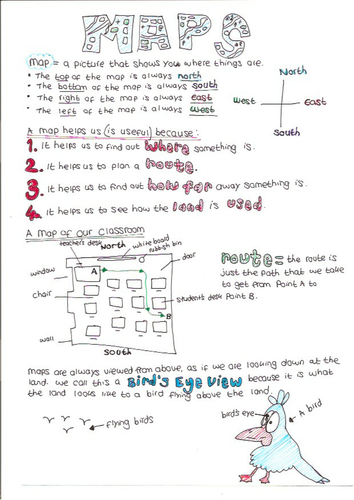 MAPS
map = a picture that shows you where things are.
• The top of the map is always north
• The bottom of the map is always south
• The right of the map is always east
• The left of the map is always west
North
West
East
South
A map helps us (is useful) because:
1. It helps us to find out where something is.
2. It helps us to plan a route.
3. It helps us to find out how far away something is.
4. It helps us to see how the land is used.
A map of our classroom
teacher's desk
North
white board
rubbish bin
door
window
A
chair
students desk
B
wall
South
route = the route is
just the path that we take
to get from Point A to
Point B.
maps are always viewed from above, as if we are looking down at the
land. We call this a Bird's Eye View because it is what
the land looks like to a bird flying above the land.
bird's eye
A bird
flying birds